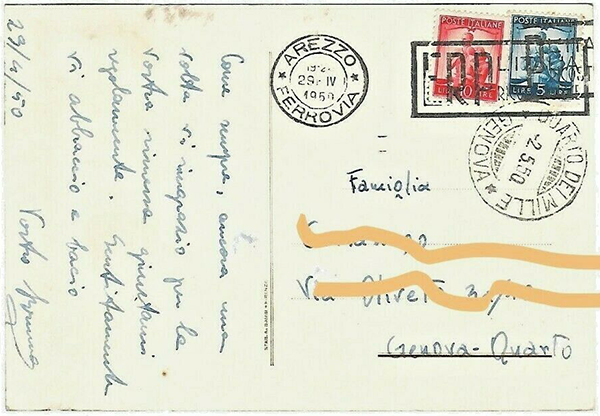 29/4/50
Cara mamma, ancora una
volta vi ringrazio per la
vostra rimessa giuntami
regolarmente. Sentitamente
vi abbraccio e bacio
Vostro
AREZZO
29. IV
1950
FERROVIA
POSTE ITALIANE
LIRE 10
POSTE ITALIANE
LIRE 5
QUARTO DEI MILLE
-2.5.50
GENOVA
Famiglia
Via Oliveti
Genova-Quarto